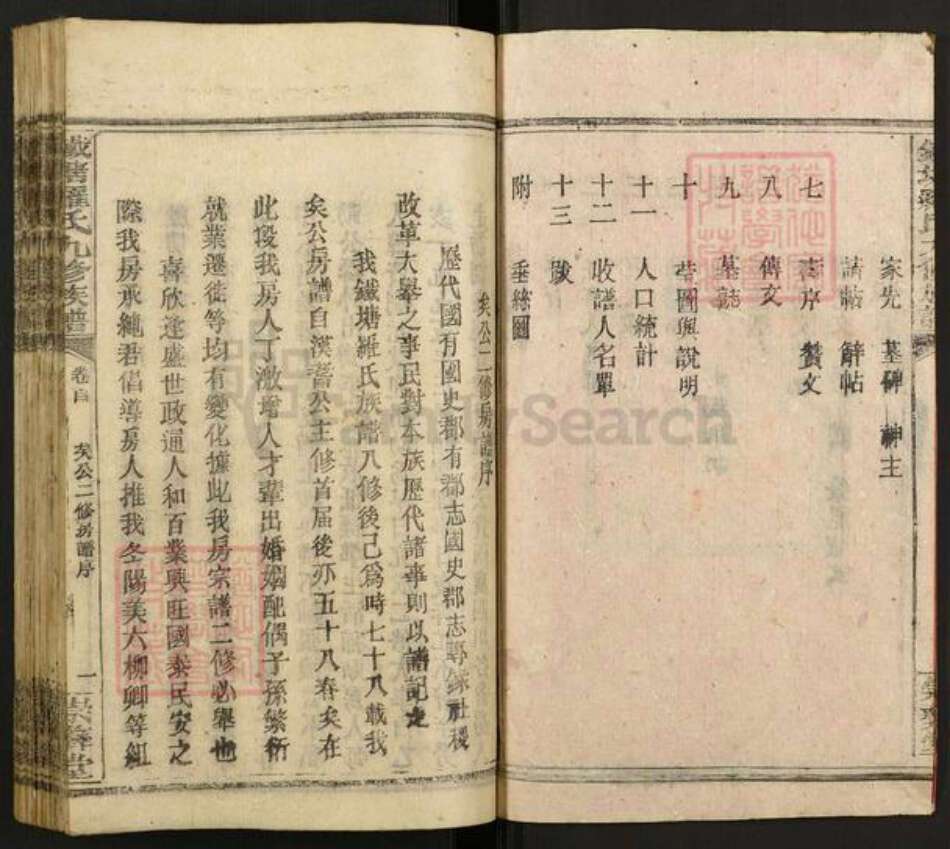 家先 墓碑 神主
請帖 辭帖
七 壽序 贊文
八 傳文
九 墓誌
十 塋圖與說明
十一 人口統計
十二 收譜人名單
十三 跋
附 垂絲圖
矣公二修房譜序
歷代國有國史郡有郡志國史郡志專錄社稷
改革大舉之事民對本族歷代諸事則以譜記之
我鐵塘羅氏族譜八修後己為時七十八載我
矣公房譜自漢耆公主修首届後亦五十八春矣在
此段我房人丁激增人才輩出婚姻配偶子孫繁衍
就業遷徙等均有變化據此我房宗譜二修必舉也
喜欣逢盛世政通人和百業興旺國泰民安之
際我房承繩君倡導房人推我冬陽美六柳卿等組
鐵塘羅氏九修族譜
卷首
矣公二修房譜序
一
FamilySearch